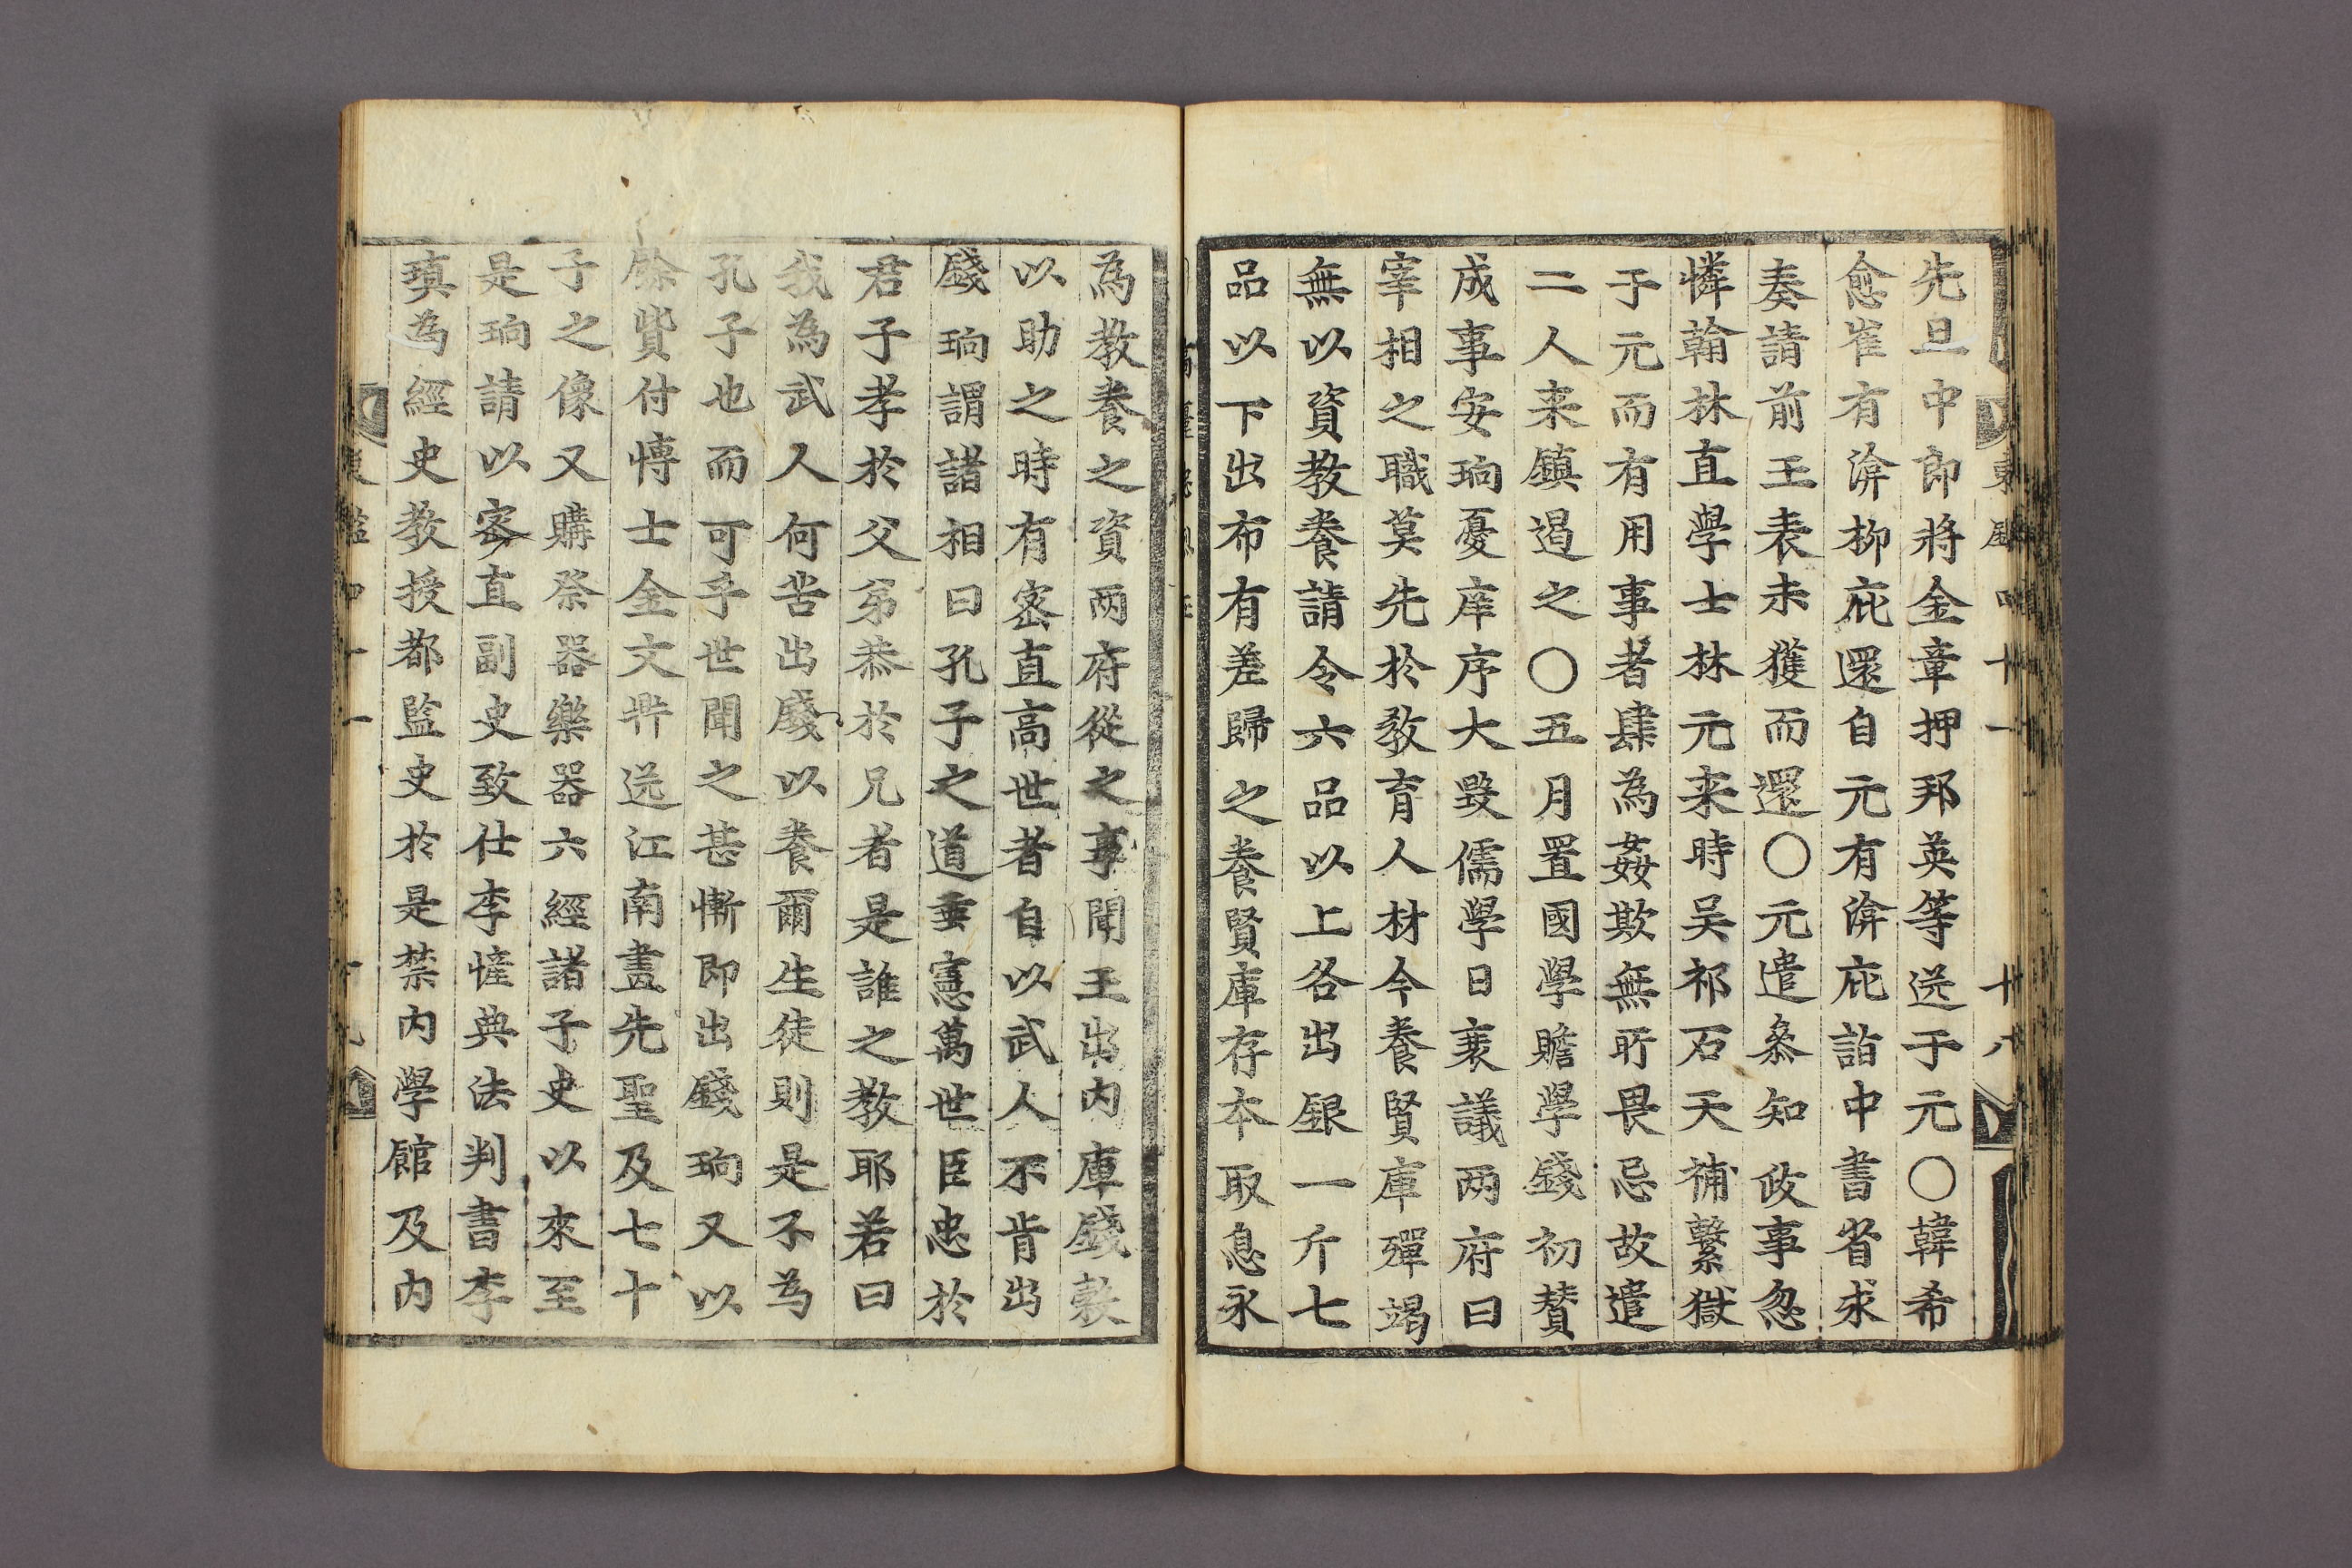 先旦中郎將金章押邦英等送于元〇韓希
愈崔有渰柳庇還自元有渰庇詣中書省求
奏請前王表未獲而還〇元遣叅知政事忽
憐翰林直學士林元来時吴祁石天補繫獄
于元而有用事者肆為姦欺無所畏忌故遣
二人来鎮遏之〇五月置國學贍學錢初贊
成事安珦憂庠序大毁儒學日衰議两府曰
宰相之職莫先於敎育人材今養賢庫殫竭
無以資教養請令六品以上各出銀一斤七
品以下出布有差歸之養賢庫存本取息永
為教養之資两府從之事聞王出内庫錢榖
以助之時有密直高世者自以武人不肯出
錢珦謂諸相曰孔子之道垂憲萬世臣忠於
君子孝於父弟恭於兄者是誰之教耶若曰
我為武人何苦出錢以養爾生徒則是不為
孔子也而可乎世聞之甚慚即出錢珦又以
餘貲付博士金文鼎送江南畫先聖及七十
子之像又購祭器樂器六經諸子史以來至
是珦請以密直副史致仕李㦃典法判書李
瑱為經史教授都監史於是禁内學館及内
東鑑四十一 十八